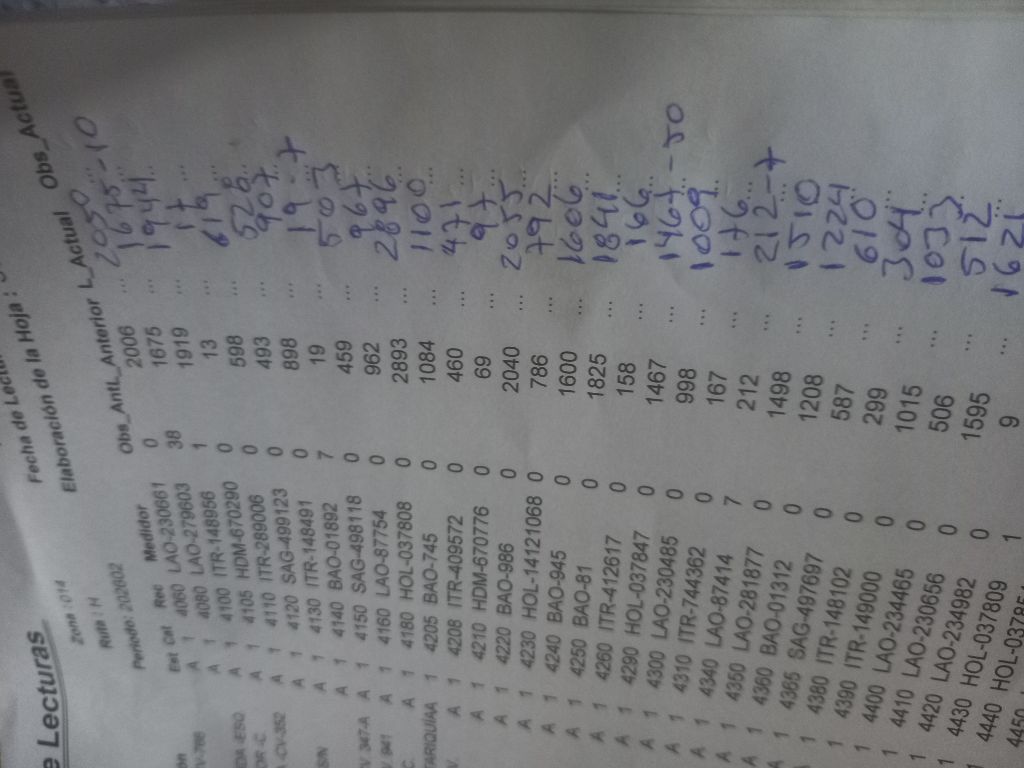 e Lecturas
Fecha de Lectu
Elaboración de la Hoja :
Zona : 014
Ruta : H
Periodo: 202802
Est Cat Rec Medidor Obs_Ant L_Anterior L_Actual Obs_Actual
A 1 4060 LAO-230661 0 2006 ... 2050
A 1 4080 LAO-279603 38 1675 ... 1675-10
A 1 4100 ITR-148956 1 1919 ... 1944
A 1 4105 HDM-670290 0 13 ... 17
A 1 4110 ITR-289006 0 598 ... 619
A 1 4120 SAG-499123 0 493 ... 528
A 1 4130 ITR-148491 0 898 ... 907
A 1 4140 BAO-01892 7 19 ... 19-7
A 1 4150 SAG-498118 0 459 ... 503
A 1 4160 LAO-87754 0 962 ... 967
A 1 4180 HOL-037808 0 2893 ... 2896
A 1 4205 BAO-745 0 1084 ... 1100
A 1 4208 ITR-409572 0 460 ... 471
A 1 4210 HDM-670776 0 69 ... 97
A 1 4220 BAO-986 0 2040 ... 2055
A 1 4230 HOL-14121068 0 786 ... 792
A 1 4240 BAO-945 0 1600 ... 1606
A 1 4250 BAO-81 0 1825 ... 1841
A 1 4260 ITR-412617 0 158 ... 166
A 1 4290 HOL-037847 0 1467 ... 1467-50
A 1 4300 LAO-230485 0 998 ... 1009
A 1 4310 ITR-744362 0 167 ... 176
A 1 4340 LAO-87414 7 212 ... 212-7
A 1 4350 LAO-281877 0 1498 ... 1510
A 1 4360 BAO-01312 0 1208 ... 1224
A 1 4365 SAG-497697 0 587 ... 610
A 1 4380 ITR-148102 0 299 ... 304
A 1 4390 ITR-149000 0 1015 ... 1033
1 4400 LAO-234465 0 506 ... 512
1 4410 LAO-230656 0 1595 ... 1621
1 4420 LAO-234982 0 9
1 4430 HOL-037809 1
4440 HOL-03785
4450